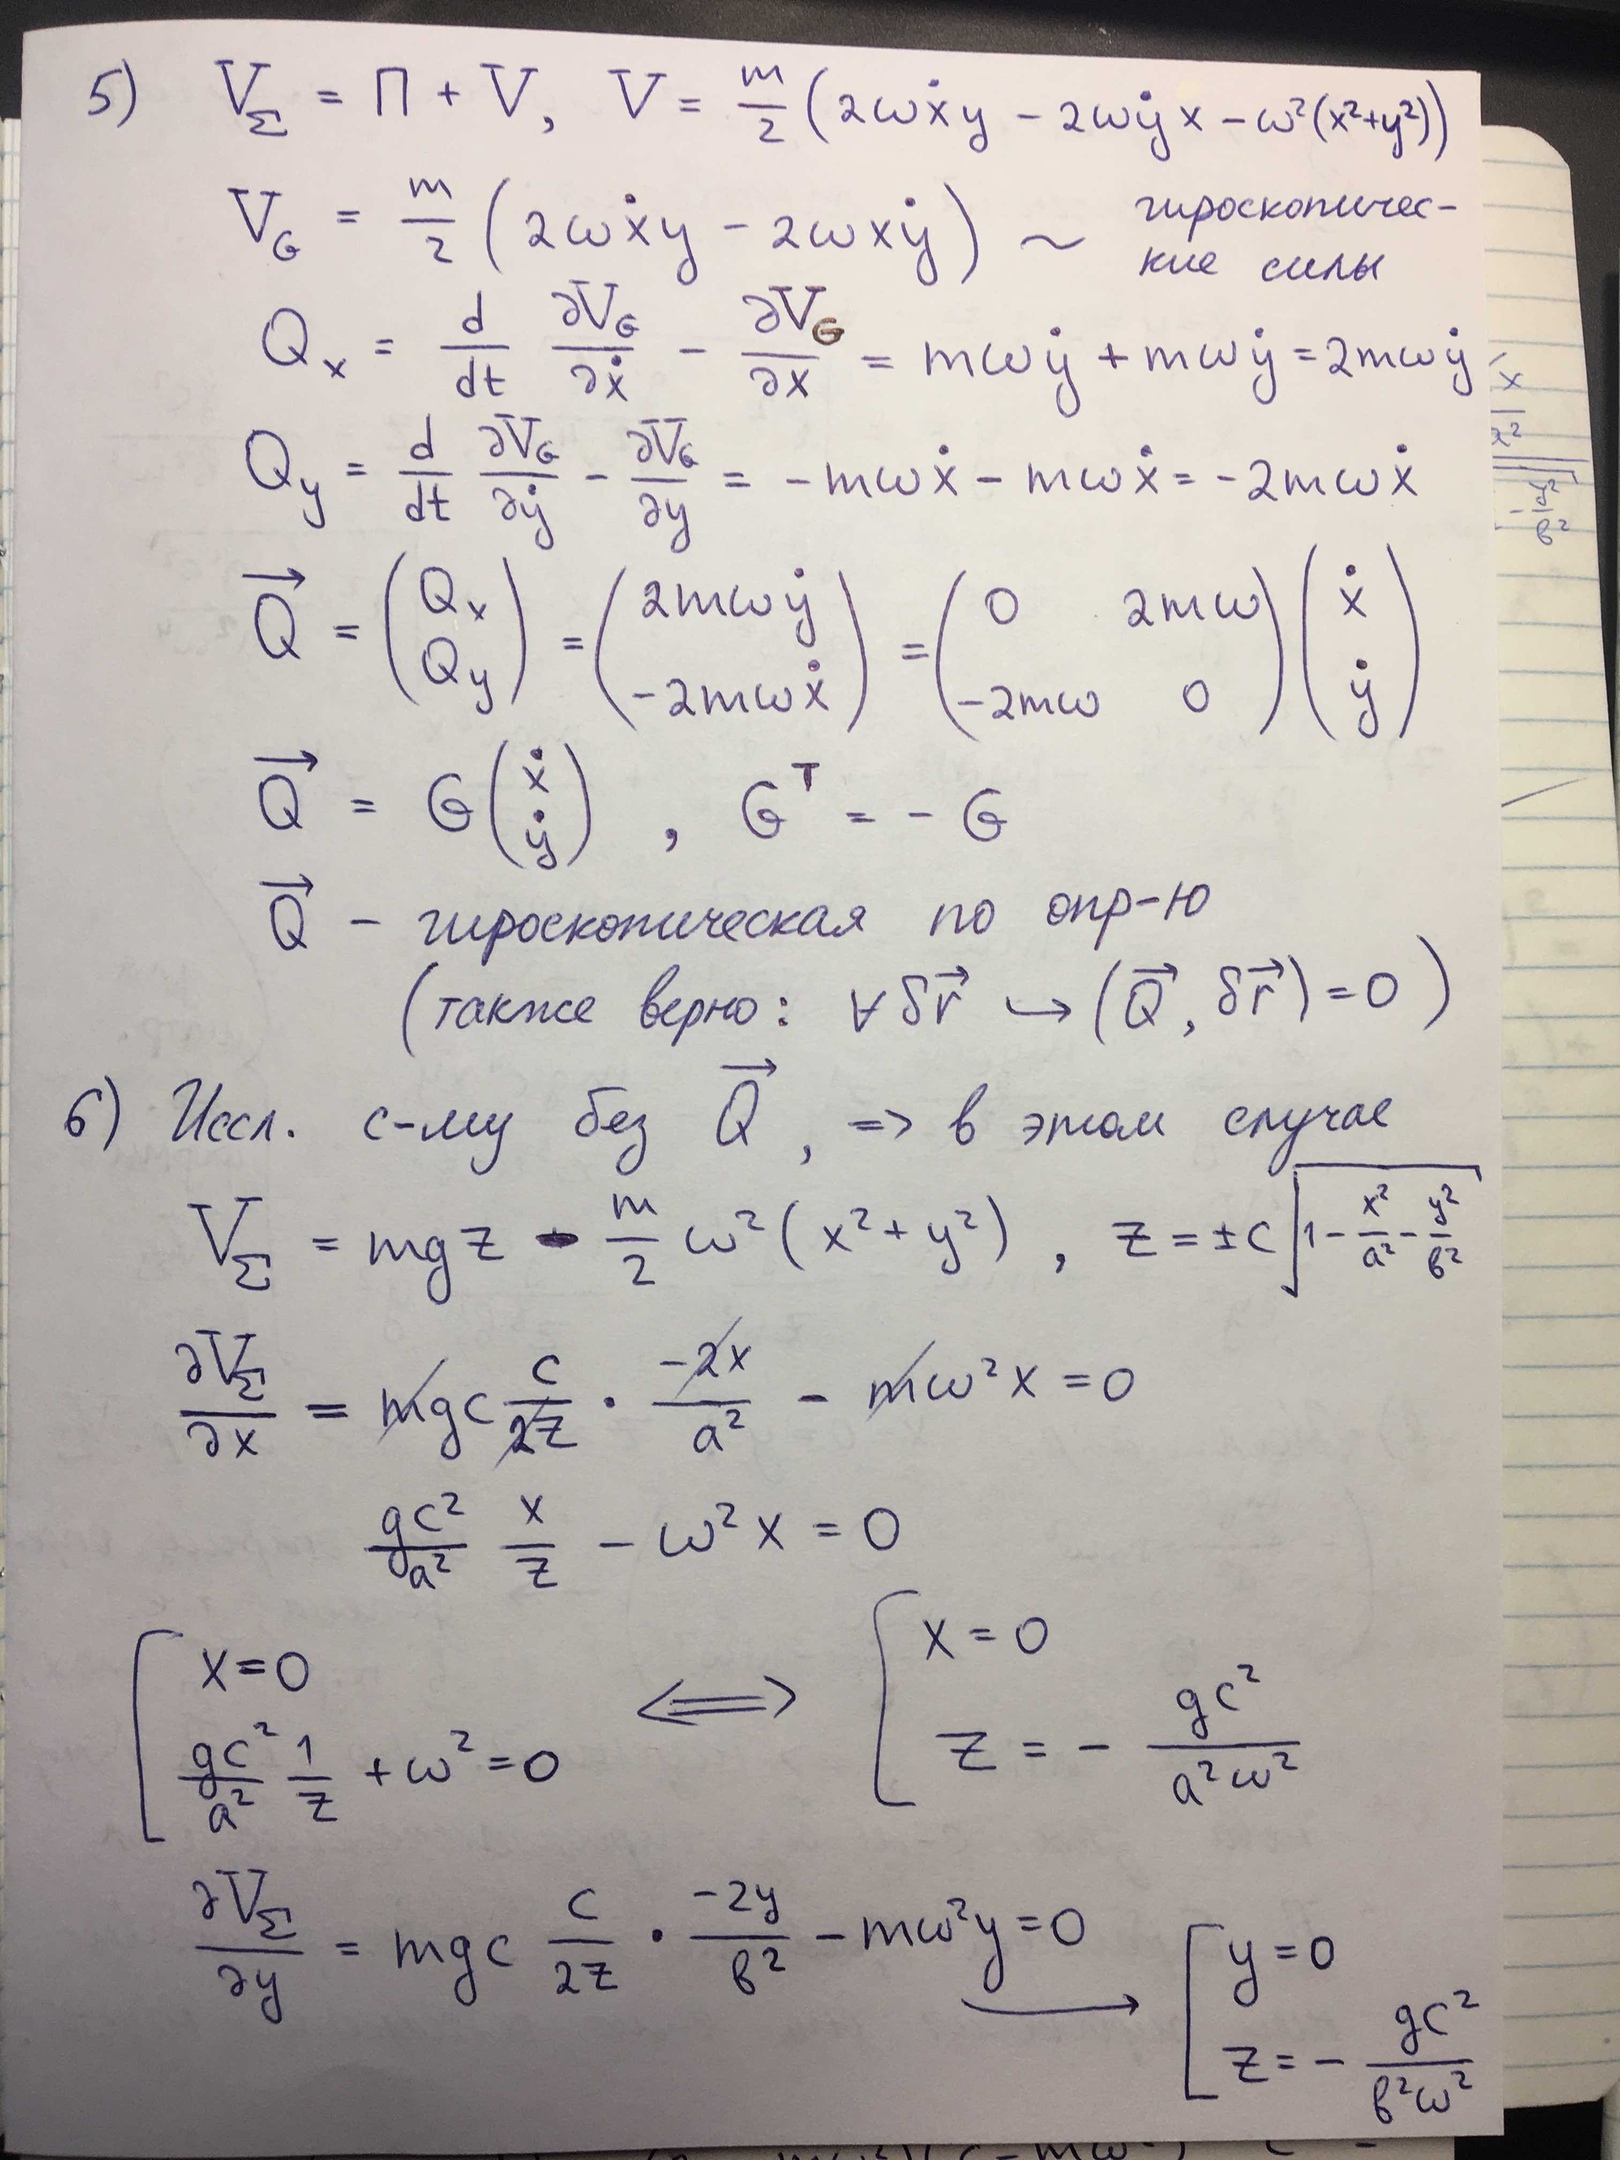 5) V_Σ = Π + V, V = m/2 (2ωẋy − 2ωẏx − ω²(x²+y²))
V_G = m/2 (2ωẋy − 2ωxẏ) ~ гироскопичес-
кие силы
Q_x = d/dt ∂V_G/∂ẋ − ∂V_G/∂x = mωẏ + mωẏ = 2mωẏ
Q_y = d/dt ∂V_G/∂ẏ − ∂V_G/∂y = −mωẋ − mωẋ = −2mωẋ
Q⃗ = (Q_x Q_y) = (2mωẏ −2mωẋ) = (0 2mω −2mω 0)(ẋ ẏ)
Q⃗ = G(ẋ ẏ), G^T = −G
Q⃗ − гироскопическая по опр-ю
(также верно: ∀δr⃗ ↪ (Q⃗, δr⃗) = 0)
6) Иссл. с-му без Q⃗, => в этом случае
V_Σ = mgz − m/2 ω²(x²+y²), z = ±c√(1 − x²/a² − y²/b²)
∂V_Σ/∂x = mgc c/2z · −2x/a² − mω²x = 0
gc²/a² x/z − ω²x = 0
[ x=0 ⟺ [ x=0
gc²/a² 1/z + ω² = 0 z = − gc²/a²ω²
∂V_Σ/∂y = mgc c/2z · −2y/b² − mω²y = 0 → [ y=0
z = − gc²/b²ω²